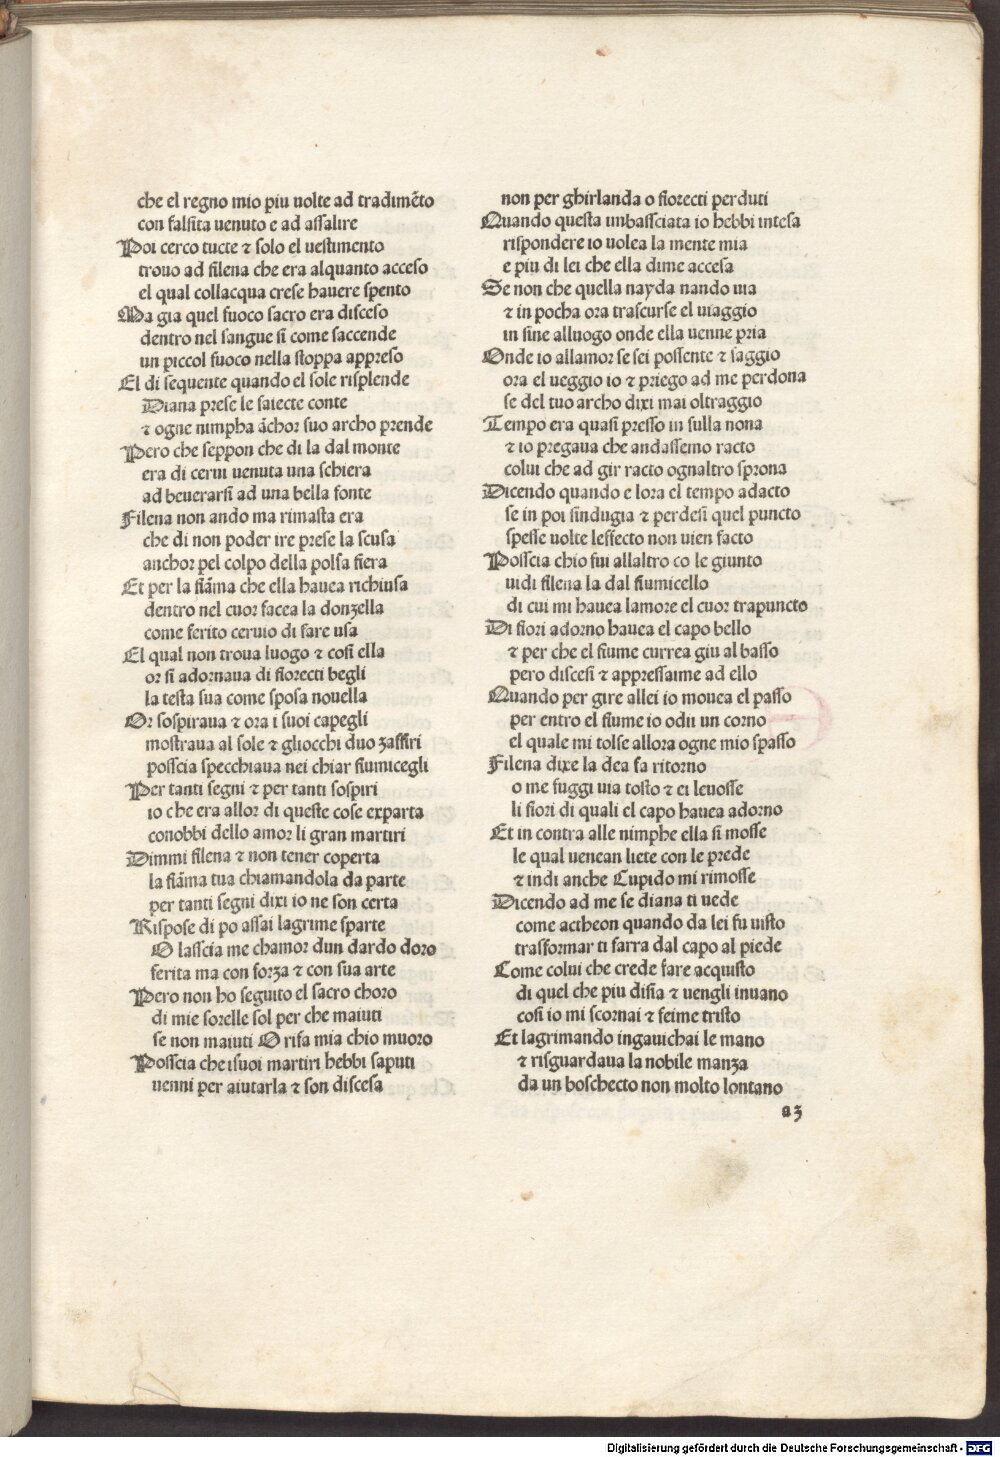 che el regno mio piu uolte ad tradimẽto
con falsita uenuto e ad assalire
Poi cerco tucte ⁊ solo el uestimento
trouo ad filena che era alquanto acceso
el qual collacqua crese hauere spento
Ma gia quel fuoco sacro era disceso
dentro nel sangue si come saccende
un piccol fuoco nella stoppa appreso
El di sequente quando el sole risplende
Diana prese le saiecte conte
⁊ ogne nimpha ãchor suo archo prende
Pero che seppon che di la dal monte
era di cerui uenuta una schiera
ad beuerarsi ad una bella fonte
Filena non ando ma rimasta era
che di non poder ire prese la scusa
anchor pel colpo della polsa fiera
Et per la fiãma che ella hauea richiusa
dentro nel cuor facea la donzella
come ferito ceruio di fare usa
El qual non troua luogo ⁊ cosi ella
or si adornaua di fiorecti begli
la testa sua come sposa nouella
Or sospiraua ⁊ ora i suoi capegli
mostraua al sole ⁊ gliocchi duo zaffiri
posscia specchiaua nei chiar fiumicegli
Per tanti segni ⁊ per tanti sospiri
io che era allor di queste cose exparta
conobbi dello amor li gran martiri
Dimmi filena ⁊ non tener coperta
la fiãma tua chiamandola da parte
per tanti segni dixi io ne son certa
Rispose di po assai lagrime sparte
O lasscia me chamor dun dardo doro
ferita ma con forza ⁊ con sua arte
Pero non ho seguito el sacro choro
di mie sorelle sol per che maiuti
se non maiuti O rifa mia chio muoro
Posscia che isuoi martiri hebbi saputi
uenni per aiutarla ⁊ son discesa
non per ghirlanda o fiorecti perduti
Quando questa imbassciata io hebbi intesa
rispondere io uolea la mente mia
e piu di lei che ella dime accesa
Se non che quella nayda nando uia
⁊ in pocha ora trascurse el uiaggio
in fine alluogo onde ella uenne pria
Onde io allamor se sei possente ⁊ saggio
ora el ueggio io ⁊ priego ad me perdona
se del tuo archo dixi mai oltraggio
Tempo era quasi presso in sulla nona
⁊ io pregaua che andassemo racto
colui che ad gir racto ognaltro sprona
Dicendo quando e lora el tempo adacto
se in poi sindugia ⁊ perdesi quel puncto
spesse uolte leffecto non uien facto
Posscia chio fui allaltro co le giunto
uidi filena la dal fiumicello
di cui mi hauea lamore el cuor trapuncto
Di fiori adorno hauea el capo bello
⁊ per che el fiume currea giu al basso
pero discesi ⁊ appressaime ad ello
Quando per gire allei io mouea el passo
per entro el fiume io odii un corno
el quale mi tolse allora ogne mio spasso
Filena dixe la dea fa ritorno
o me fuggi uia tosto ⁊ ei leuosse
li fiori di quali el capo hauea adorno
Et in contra alle nimphe ella si mosse
le qual uenean liete con le prede
⁊ indi anche Cupido mi rimosse
Dicendo ad me se diana ti uede
come actheon quando da lei fu uisto
trasformar ti farra dal capo al piede
Come colui che crede fare acquisto
di quel che piu disia ⁊ uengli inuano
cosi io mi scornai ⁊ feime tristo
Et lagrimando ingauichai le mano
⁊ risguardaua la nobile manza
da un boschecto non molto lontano
a3
Digitalisierung gefördert durch die Deutsche Forschungsgemeinschaft - DFG